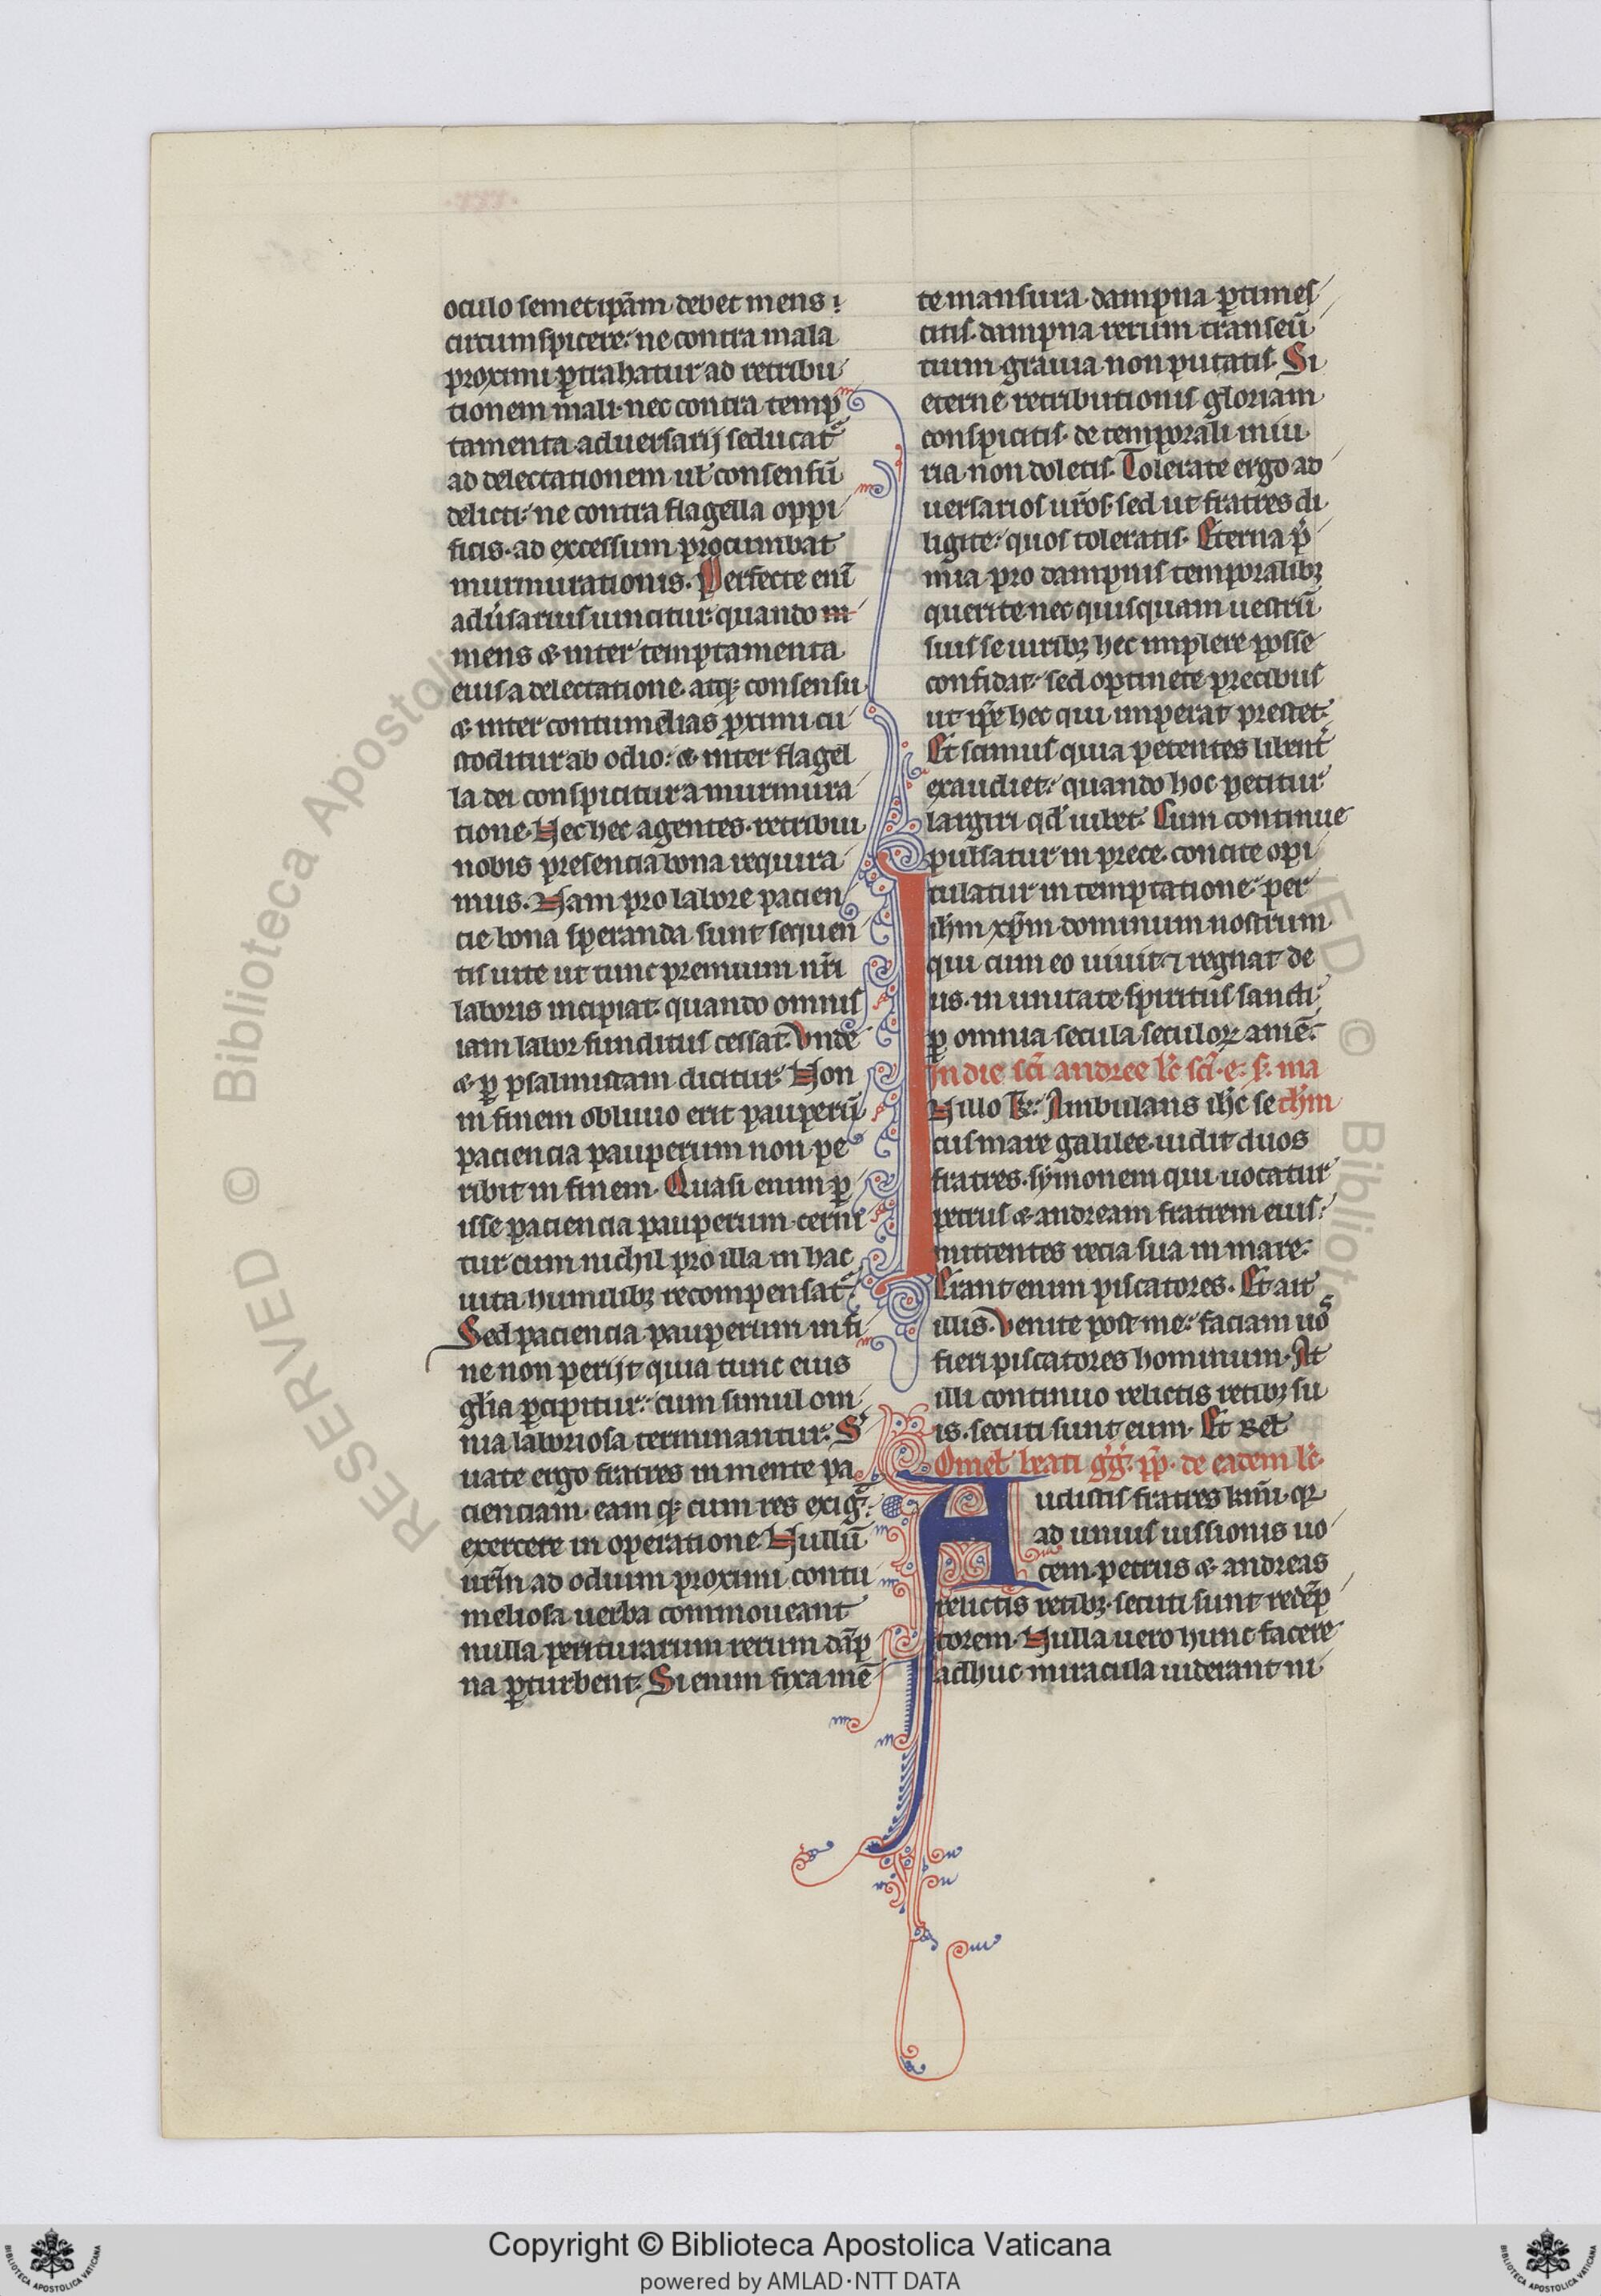 oculo semetip̄am debet mens
circumspicere: ne contra mala
proximi ꝑtrahatur ad retribu
tionem mali. nec contra temp
tamenta aduersarij seducat᷑
ad delectationem ul̕ consensū
delicti. ne contra flagella oppi
ficis. ad excessum procumbat
murmurationis. Perfecte enī
adu̕sarius uincitur. quando in
mens ⁊ inter temptamenta
eius a delectatione. atq; consensu
⁊ inter contumelias ꝓximi cu
stoditur ab odio: ⁊ inter flagel
la dei conspicitur a murmura
tione. Hec hec agentes. retribui
nobis presencia bona requira
mus. Nam pro labore pacien
cie bona speranda sunt sequen
tis uite ut tunc premium nr̄i
laboris incipiat. quando omnis
iam labor funditus cessat. Vnde
⁊ ꝑ psalmistam dicitur. Non
in finem obliuio erit pauperū
paciencia pauperum non pe
ribit in finem. Quasi enim ꝑ
isse paciencia pauperum cerni
tur cum nichil pro illa in hac
uita humilibꝫ recompensat᷑.
Sed paciencia pauperum in fi
ne non perijt quia tunc eius
gl̄ia ꝑcipitur: cum simul om
nia laboriosa terminantur. S̕
uate ergo fratres in mente pa
cienciam. eam q; cum res exig̕.
exercete in operatione. Nullū
ur̄m ad odium proximi contu
meliosa uerba commoueant
nulla periturarum rerum dāp
na ꝑturbent. Si enim fixa mē
te mansura dampna ꝑtimes
citis. dampna rerum transeū
tium grauia non putatis. Si
eterne retributionis gloriam
conspicitis. de temporali iniu
ria non doletis. Tolerate ergo ad
uersarios ur̄os. sed ut fratres di
ligite: quos toleratis. Eterna p̕
mia pro dampnis temporalibꝫ
querite nec quisquam uestrū
suis se uiribꝫ hec implere posse
confidat: sed optinete precibus
ut ip̄e hec qui imperat prestet.
Et scimus quia petentes libent̕
exaudiet: quando hoc petitur
largiri qd̄ iubet. Cum continue
pulsatur in prece. concite opi
tulatur in temptatione. per
ih̄m xp̄m dominum nostrum
qui cum eo uiuit ⁊ regnat de
us. in unitate spiritus sancti
ꝑ omnia secula seculoꝝ amē.
In die sc̄i andree lc̄ sc̄i. e. s̄. ma
N illo t̄. Ambulans ih̄c se ch̄m
cus mare galilee. uidit duos
fratres. symonem qui uocatur
petrus ⁊ andream fratrem eius:
mittentes recia sua in mare.
Erant enim piscatores. Et ait
illis. Venite post me: faciam uo s
fieri piscatores hominum. At
illi continuo relictis retibꝫ su
is. secuti sunt eum. Et Rel̕
Omel̕ beati g̕g̕. pp̄. de eadem lc̄.
Audistis fratres km̄i. qꝛ
ad unius iussionis uo
cem. petrus ⁊ andreas
relictis retibꝫ. secuti sunt redēp
torem. Nulla uero hunc facere
adhuc miracula uiderant ni
RESERVED © Biblioteca Apostolica
Copyright © Biblioteca Apostolica Vaticana
powered by AMLAD·NTT DATA